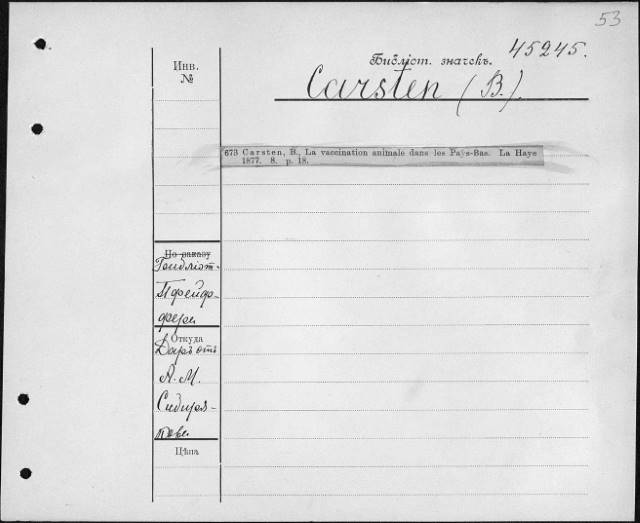 53
45245.
Библіот. значекъ.
Carsten (B.).
Инв.
№
673 Carsten, B., La vaccination animale dans les Pays-Bas. La Haye
1877. 8. p. 18.
По заказу
Библіот.
Пфейф-
фера
Откуда
Даръ отъ
А. М.
Сибиря-
кова
Цѣна